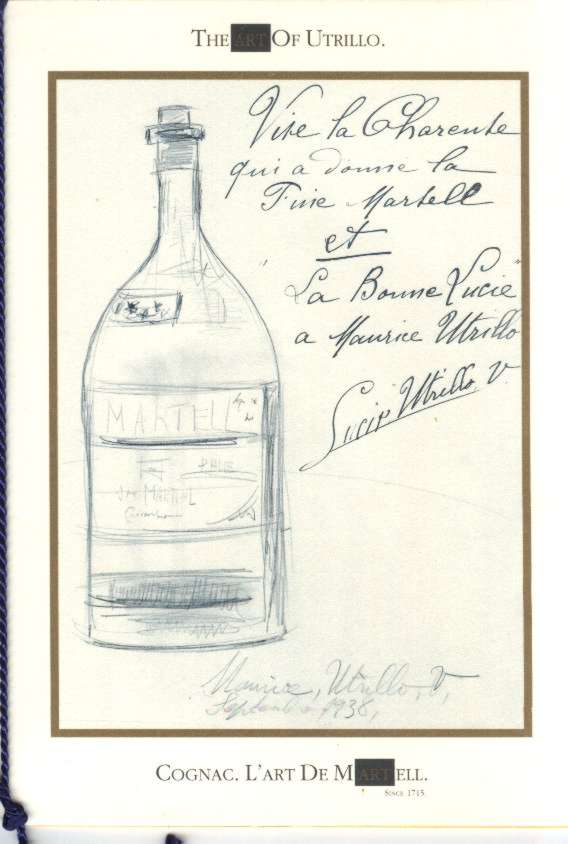 THE ART OF UTRILLO.
Vive la Charente
qui a donné la
Fine Martell
et
"La Bonne Lucie"
a Maurice Utrillo
Lucie Utrillo V.
MARTELL
MARTELL
Maurice, Utrillo, V,
Septembre 1938,
COGNAC. L'ART DE MARTELL.
SINCE 1715.